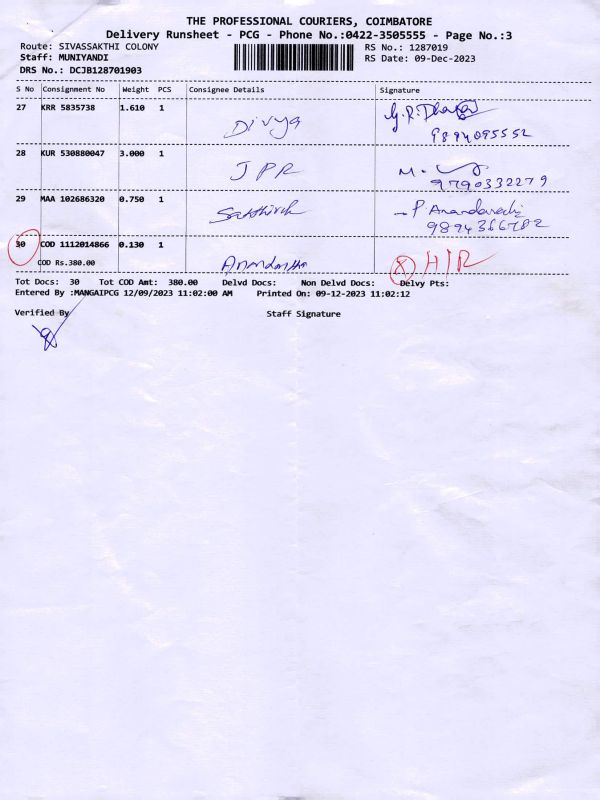 THE PROFESSIONAL COURIERS, COIMBATORE
Delivery Runsheet - PCG - Phone No.:0422-3505555 - Page No.:3
Route: SIVASSAKTHI COLONY RS No.: 1287019
Staff: MUNIYANDI RS Date: 09-Dec-2023
DRS No.: DCJB128701903
S No Consignment No Weight PCS Consignee Details Signature
27 KRR 5835738 1.610 1
Divya G.R.
9894095552
28 KUR 530880047 3.000 1
JPR M.
9790332279
29 MAA 102686320 0.750 1
P. 
9894366782
30 COD 1112014866 0.130 1
COD Rs.380.00
Tot Docs: 30 Tot COD Amt: 380.00 Delvd Docs: Non Delvd Docs: Delvy Pts:
Entered By :MANGAIPCG 12/09/2023 11:02:00 AM Printed On: 09-12-2023 11:02:12
Verified By Staff Signature